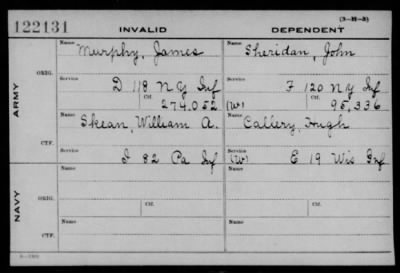 122131 INVALID DEPENDENT (3-31-3)
ARMY
ORIG.
Name Murphy, James
Name Sheridan, John
Service D 118 N Y Inf
Service F 120 N Y Inf
Ctf. 274.052
(W) Ctf. 95,336
CTF.
Name Skean, William A.
Name Callery, Hugh
Service I 82 Pa Inf
Service (W) E 19 Wis Inf
NAVY
ORIG.
Name
Name
Ctf.
Ctf.
CTF.
Name
Name